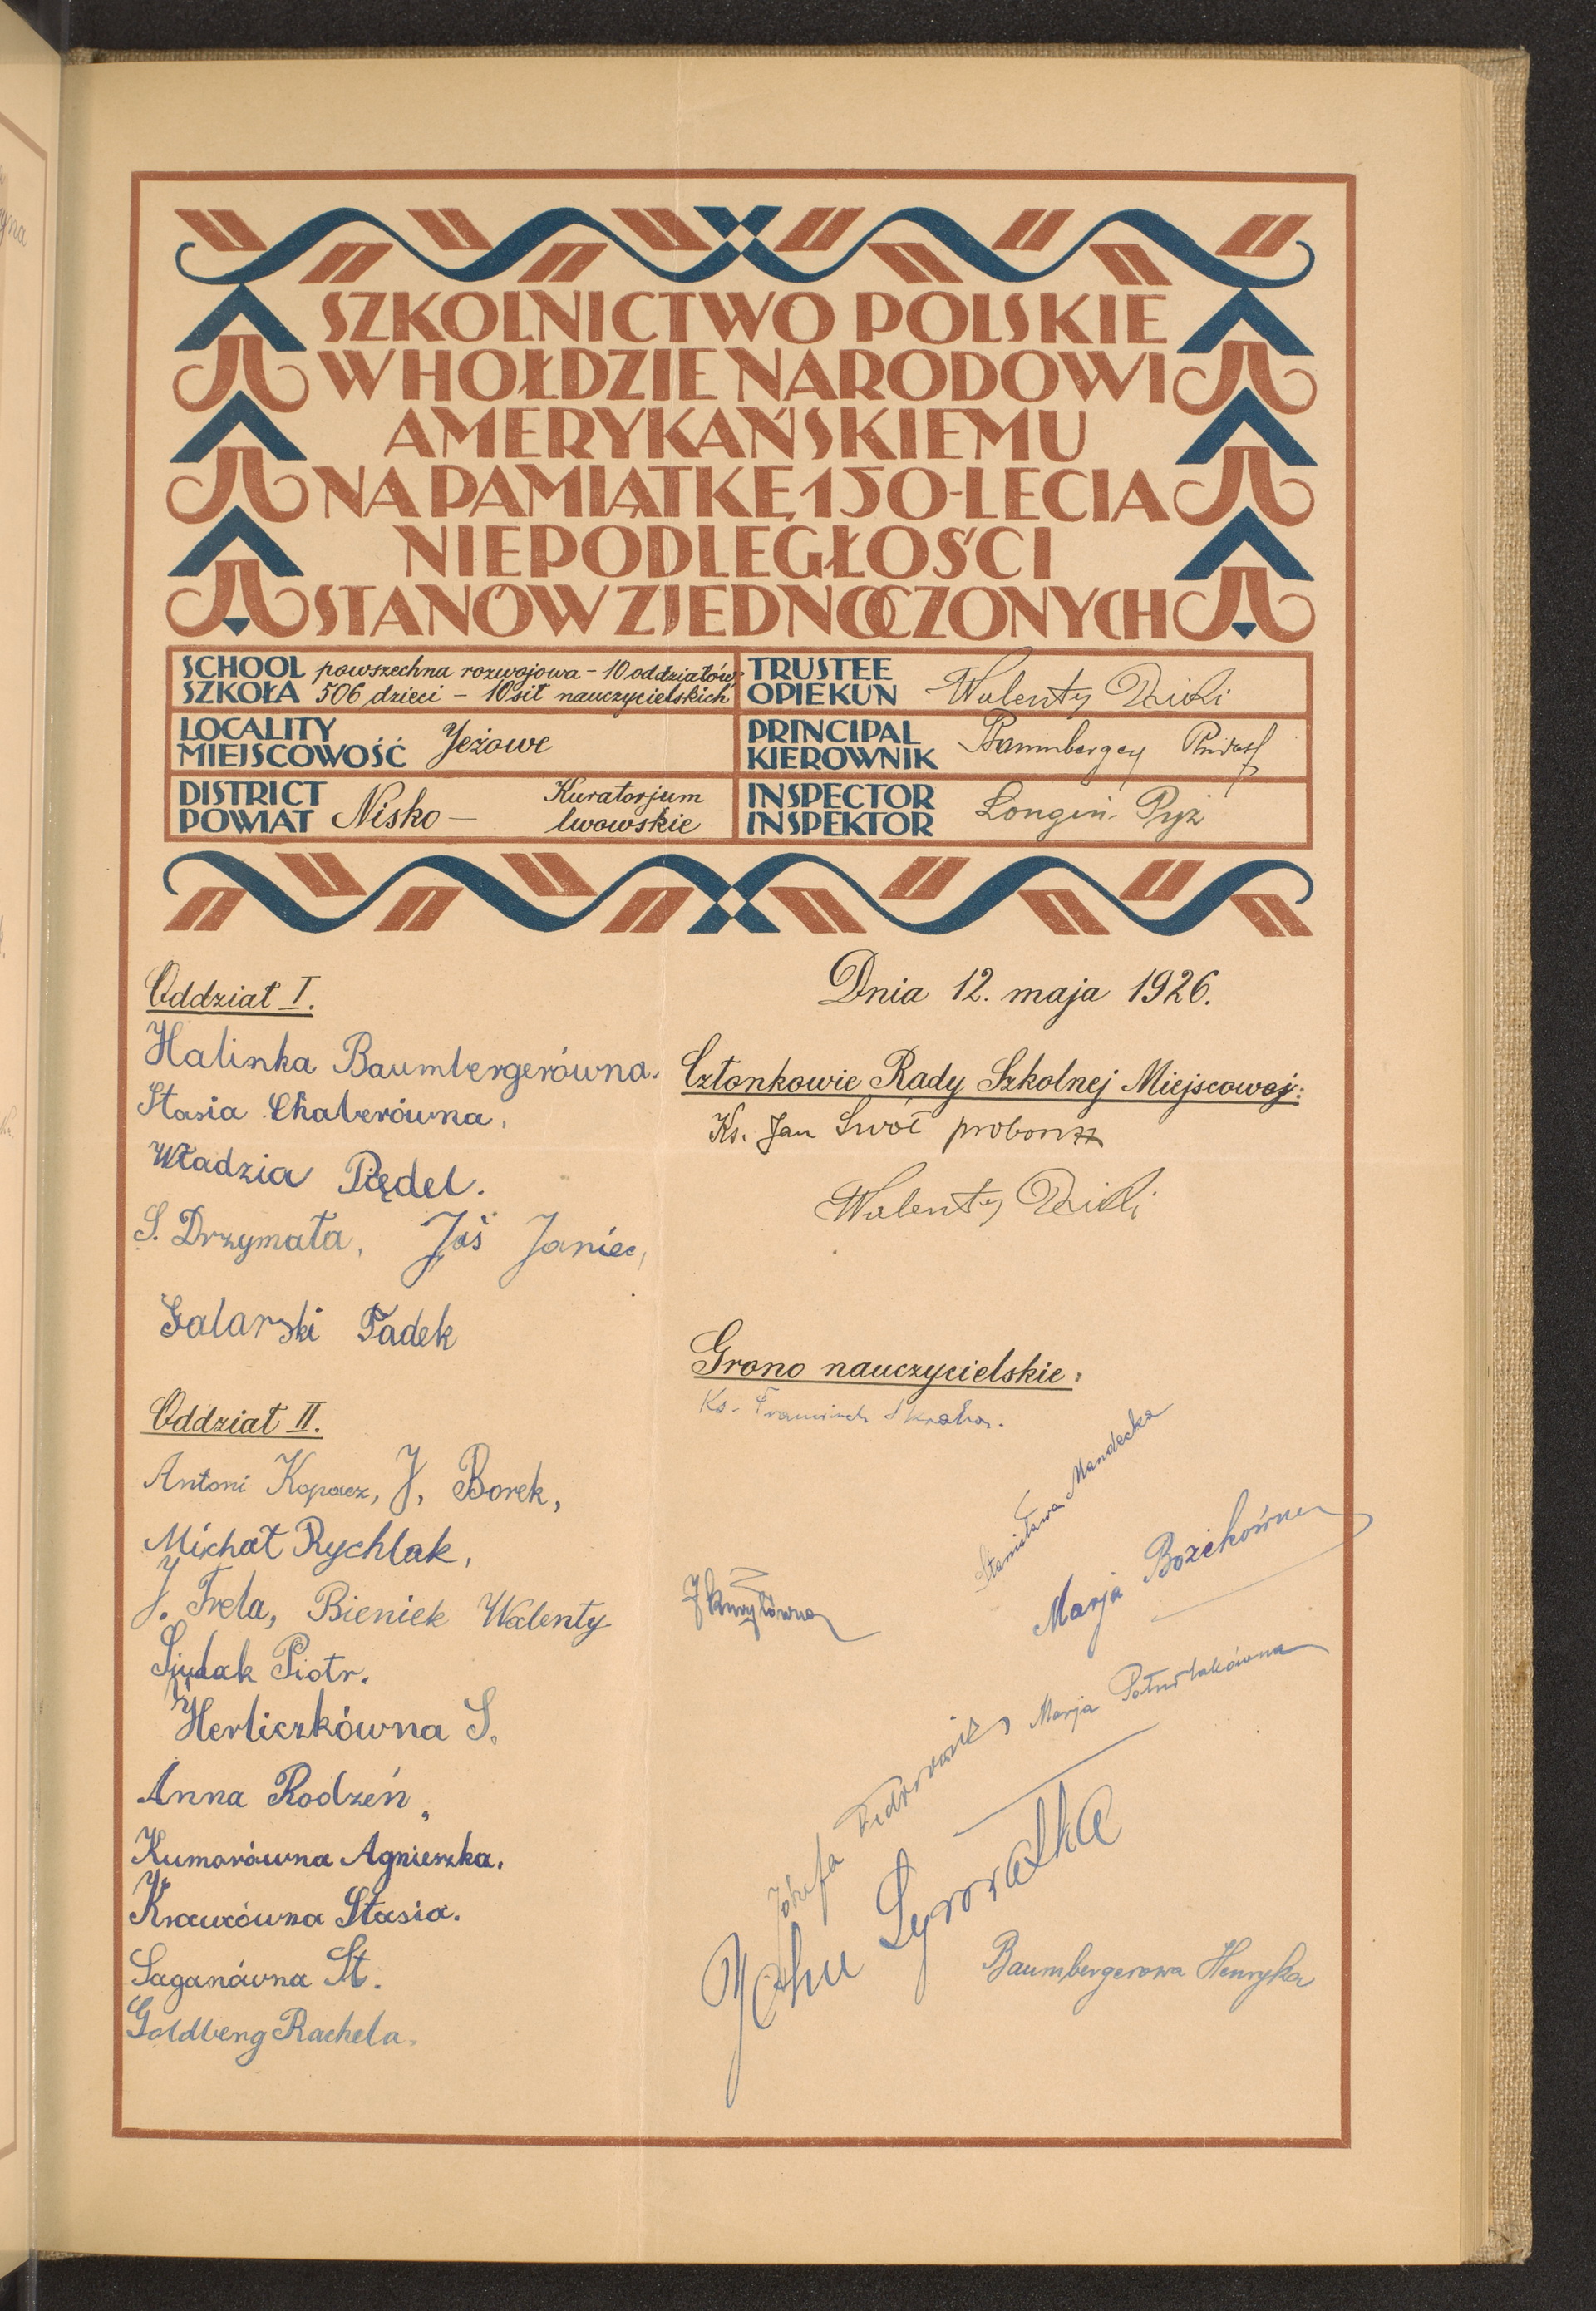 SZKOLNICTWO POLSKIE
W HOŁDZIE NARODOWI
AMERYKAŃSKIEMU
NA PAMIĄTKĘ 150-LECIA
NIEPODLEGŁOŚCI
STANÓW ZJEDNOCZONYCH
SCHOOL SZKOŁA powszechna rozwojowa - 10 oddziałów
506 dzieci - 10 sił nauczycielskich
TRUSTEE OPIEKUN Walenty
LOCALITY MIEJSCOWOŚĆ Jeżowe
PRINCIPAL KIEROWNIK Baumberger Rudolf
DISTRICT POWIAT Nisko - Kuratorjum lwowskie
INSPECTOR INSPEKTOR Longin Pyź
Oddział I.
Halinka Baumbergerówna.
Stasia Chaberówna,
Władzia Piędel.
S. Drzymała, Jaś Janiec,
Galarski Tadek
Oddział II.
Antoni Kopacz, J, Borek,
Michał Rychlak,
J. Frela, Bieniek Walenty
Siudak Piotr.
Herliczkówna S.
Anna Rodzeń,
Kumorówna Agnieszka.
Krawcówna Stasia.
Saganówna St.
Goldberg Rachela.
Dnia 12. maja 1926.
Członkowie Rady Szkolnej Miejscowej:
Ks. Jan proboszcz
Walenty
Grono nauczycielskie:
Ks. Franciszek
Stanisława Mandecka
Marja Bożekówna
Marja
Józefa
Syrowatka
Baumbergerowa Henryka